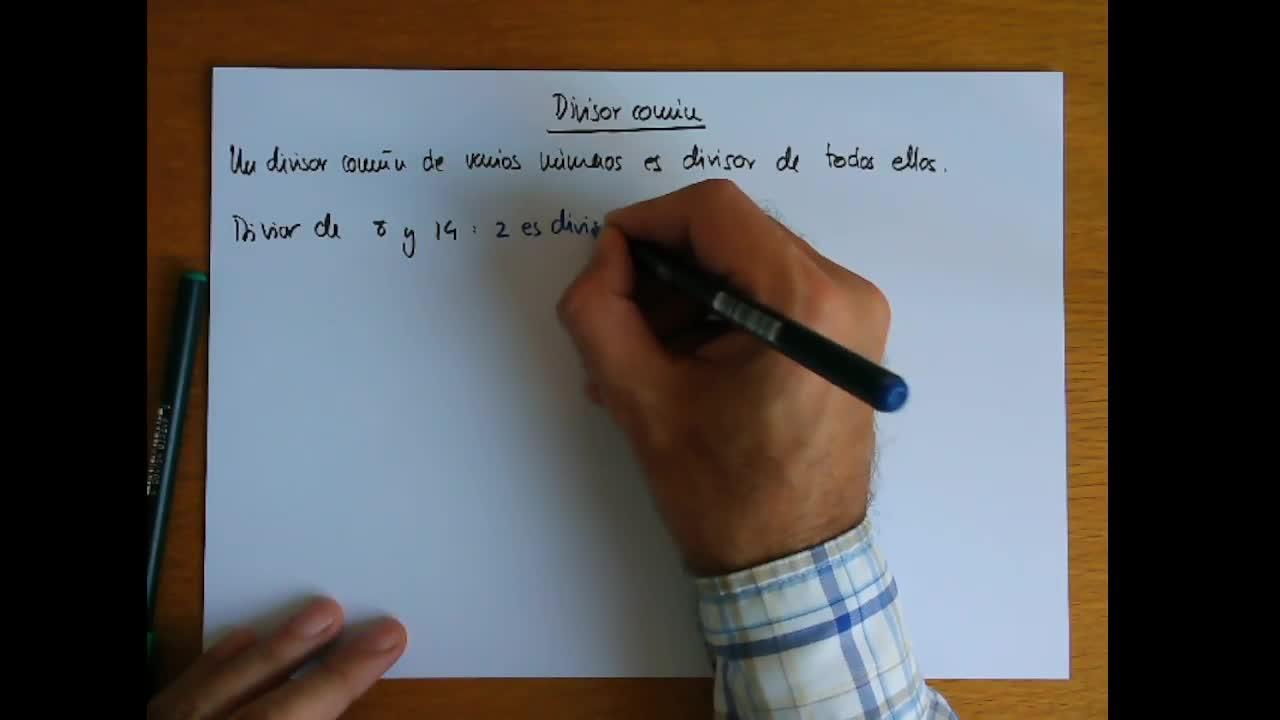 Divisor común
Un divisor común de varios números es divisor de todos ellos.
Divisor de 8 y 14 : 2 es divis